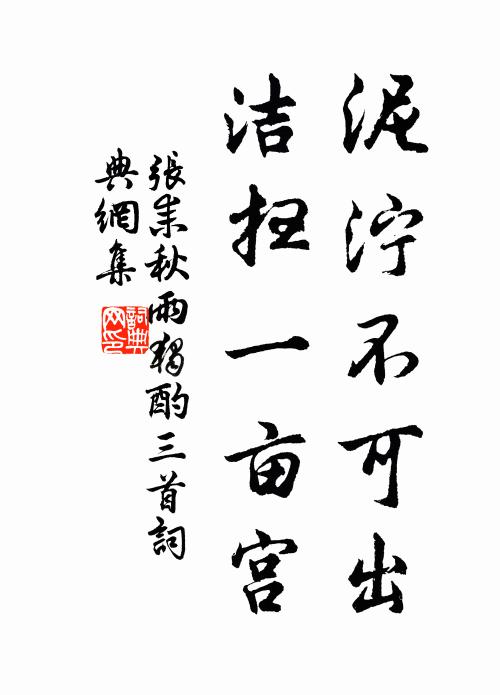 泥泞不可出
洁扫一亩宫
張耒秋雨獨酌三首詞
典網集
詞典
网印